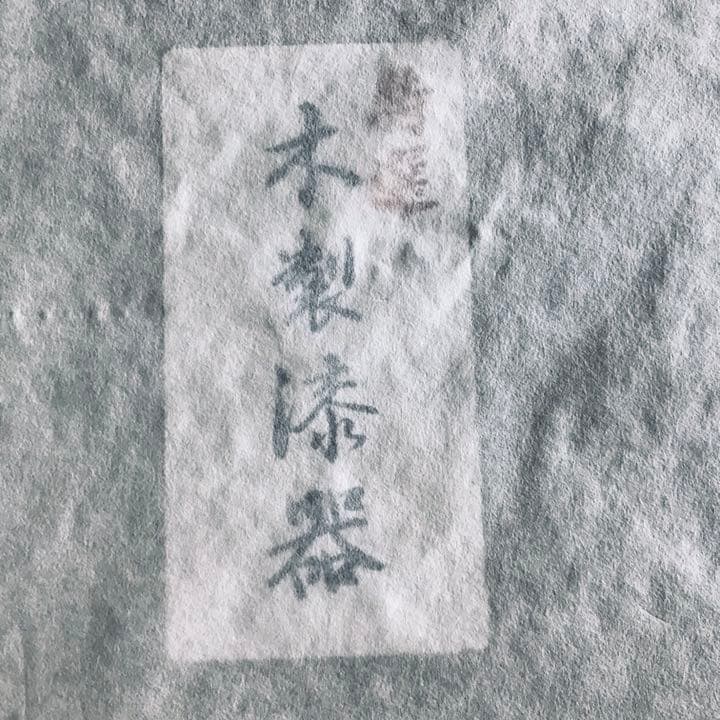 木製漆器